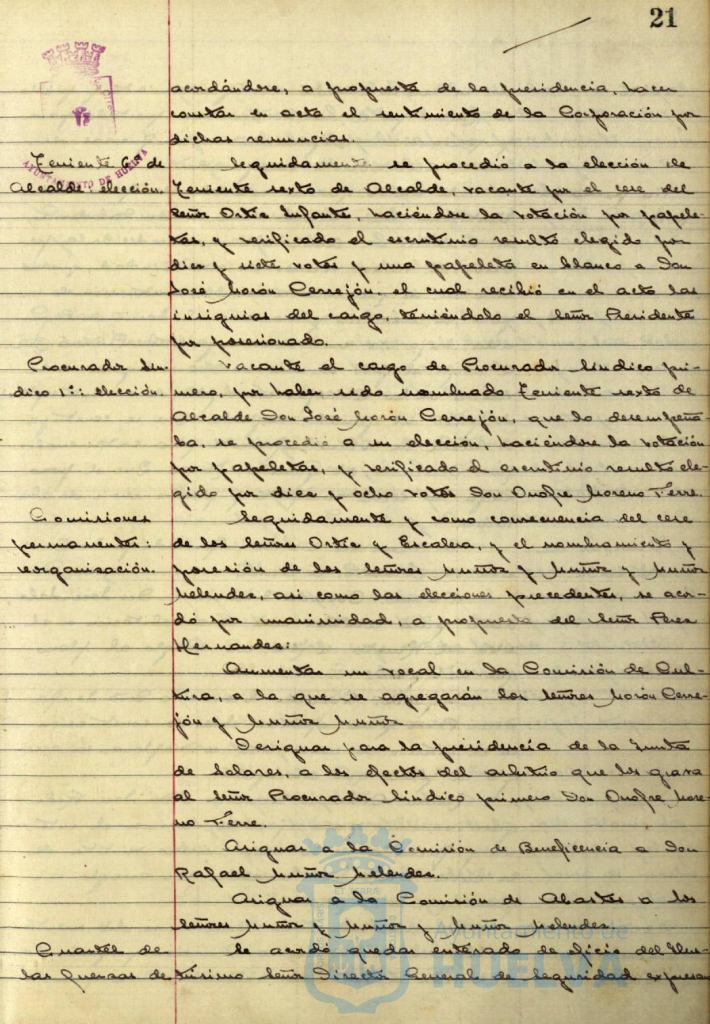 21
acordándose, a propuesta de la presidencia, hacer
constar en acta el sentimiento de la Corporación por
dichas renuncias.
Teniente 6º de
Alcalde: elección.
AYUNTAMIENTO DE HUELVA
Seguidamente se procedió a la elección de
Teniente sexto de Alcalde, vacante por el cese del
Señor Ortiz Infante, haciéndose la votación por papele-
tas, y verificado el escrutinio resultó elegido por
diez y siete votos y una papeleta en blanco a Don
José Morón Cerrejón, el cual recibió en el acto las
insignias del cargo, teniéndolo el Señor Presidente
por posesionado.
Procurador Sín-
dico 1º: elección.
Vacante el cargo de Procurador Síndico pri-
mero, por haber sido nombrado Teniente sexto de
Alcalde Don José Morón Cerrejón, que lo desempeña-
ba, se procedió a su elección, haciéndose la votación
por papeletas, y verificado el escrutinio resultó ele-
gido por diez y ocho votos Don Onofre Moreno Ferre.
Comisiones
permanentes:
reorganización.
Seguidamente y como consecuencia del cese
de los Señores Ortiz y Escalera, y el nombramiento y
posesión de los Señores Muñoz y Muñoz y Muñoz
Melendez, asi como las elecciones precedentes, se acor-
dó por unanimidad, a propuesta del Señor Perez
Hernandez:
Aumentar un vocal en la Comisión de Cul-
tura, a la que se agregarán los Señores Morón Cerre-
jón y Muñoz Muñoz
Designar para la presidencia de la Junta
de Solares, a los efectos del arbitrio que los grava
al Señor Procurador Síndico primero Don Onofre More-
no Ferre.
Asignar a la Comisión de Beneficencia a Don
Rafael Muñoz Melendez.
Asignar a la Comisión de Abastos a los
Señores Muñoz y Muñoz y Muñoz Melendez.
Cuartel de
las fuerzas de
Se acordó quedar enterado de oficio del Ilus-
trísimo Señor Director General de Seguridad expresan